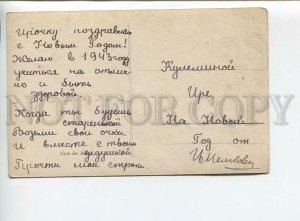 Ирочку поздравляю
с Новым Годом!
Желаю в 1943 году
учиться на отлич
но и быть
здоровой
Когда ты будешь
старенькой
Возьми свои очки
И вместе с твоим
дедушкой
Прочти мои строки
Кулешиной
Ире,
На Новый
Год от
NOT FOR COPY